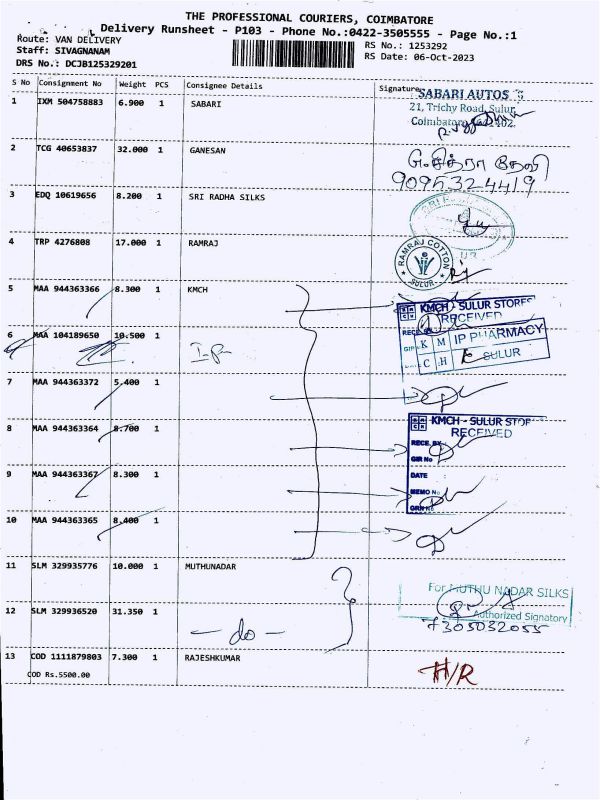 THE PROFESSIONAL COURIERS, COIMBATORE
Delivery Runsheet - P103 - Phone No.:0422-3505555 - Page No.:1
Route: VAN DELIVERY
RS No.: 1253292
Staff: SIVAGNANAM
RS Date: 06-Oct-2023
DRS No.: DCJB125329201
S No Consignment No Weight PCS Consignee Details Signature
1 IXM 504758883 6.900 1 SABARI
SABARI AUTOS
21, Trichy Road, Sulur,
Coimbatore 402.
2 TCG 40653837 32.000 1 GANESAN
9095324419
3 EDQ 10619656 8.200 1 SRI RADHA SILKS
4 TRP 4276808 17.000 1 RAMRAJ
RAMRAJ COTTON
SULUR
5 MAA 944363366 8.300 1 KMCH
KMCH - SULUR STORES
RECEIVED
6 MAA 104189650 10.500 1
K M IP PHARMACY
C H SULUR
7 MAA 944363372 5.400 1
8 MAA 944363364 8.700 1
KMCH - SULUR STOR
RECEIVED
RECE. BY
GIR No
9 MAA 944363367 8.300 1
DATE
MEMO No
GRN No
10 MAA 944363365 8.400 1
11 SLM 329935776 10.000 1 MUTHUNADAR
For MUTHU NADAR SILKS
Authorized Signatory
12 SLM 329936520 31.350 1
- do -
7305032055
13 COD 1111879803 7.300 1 RAJESHKUMAR
H/R
COD Rs.5500.00